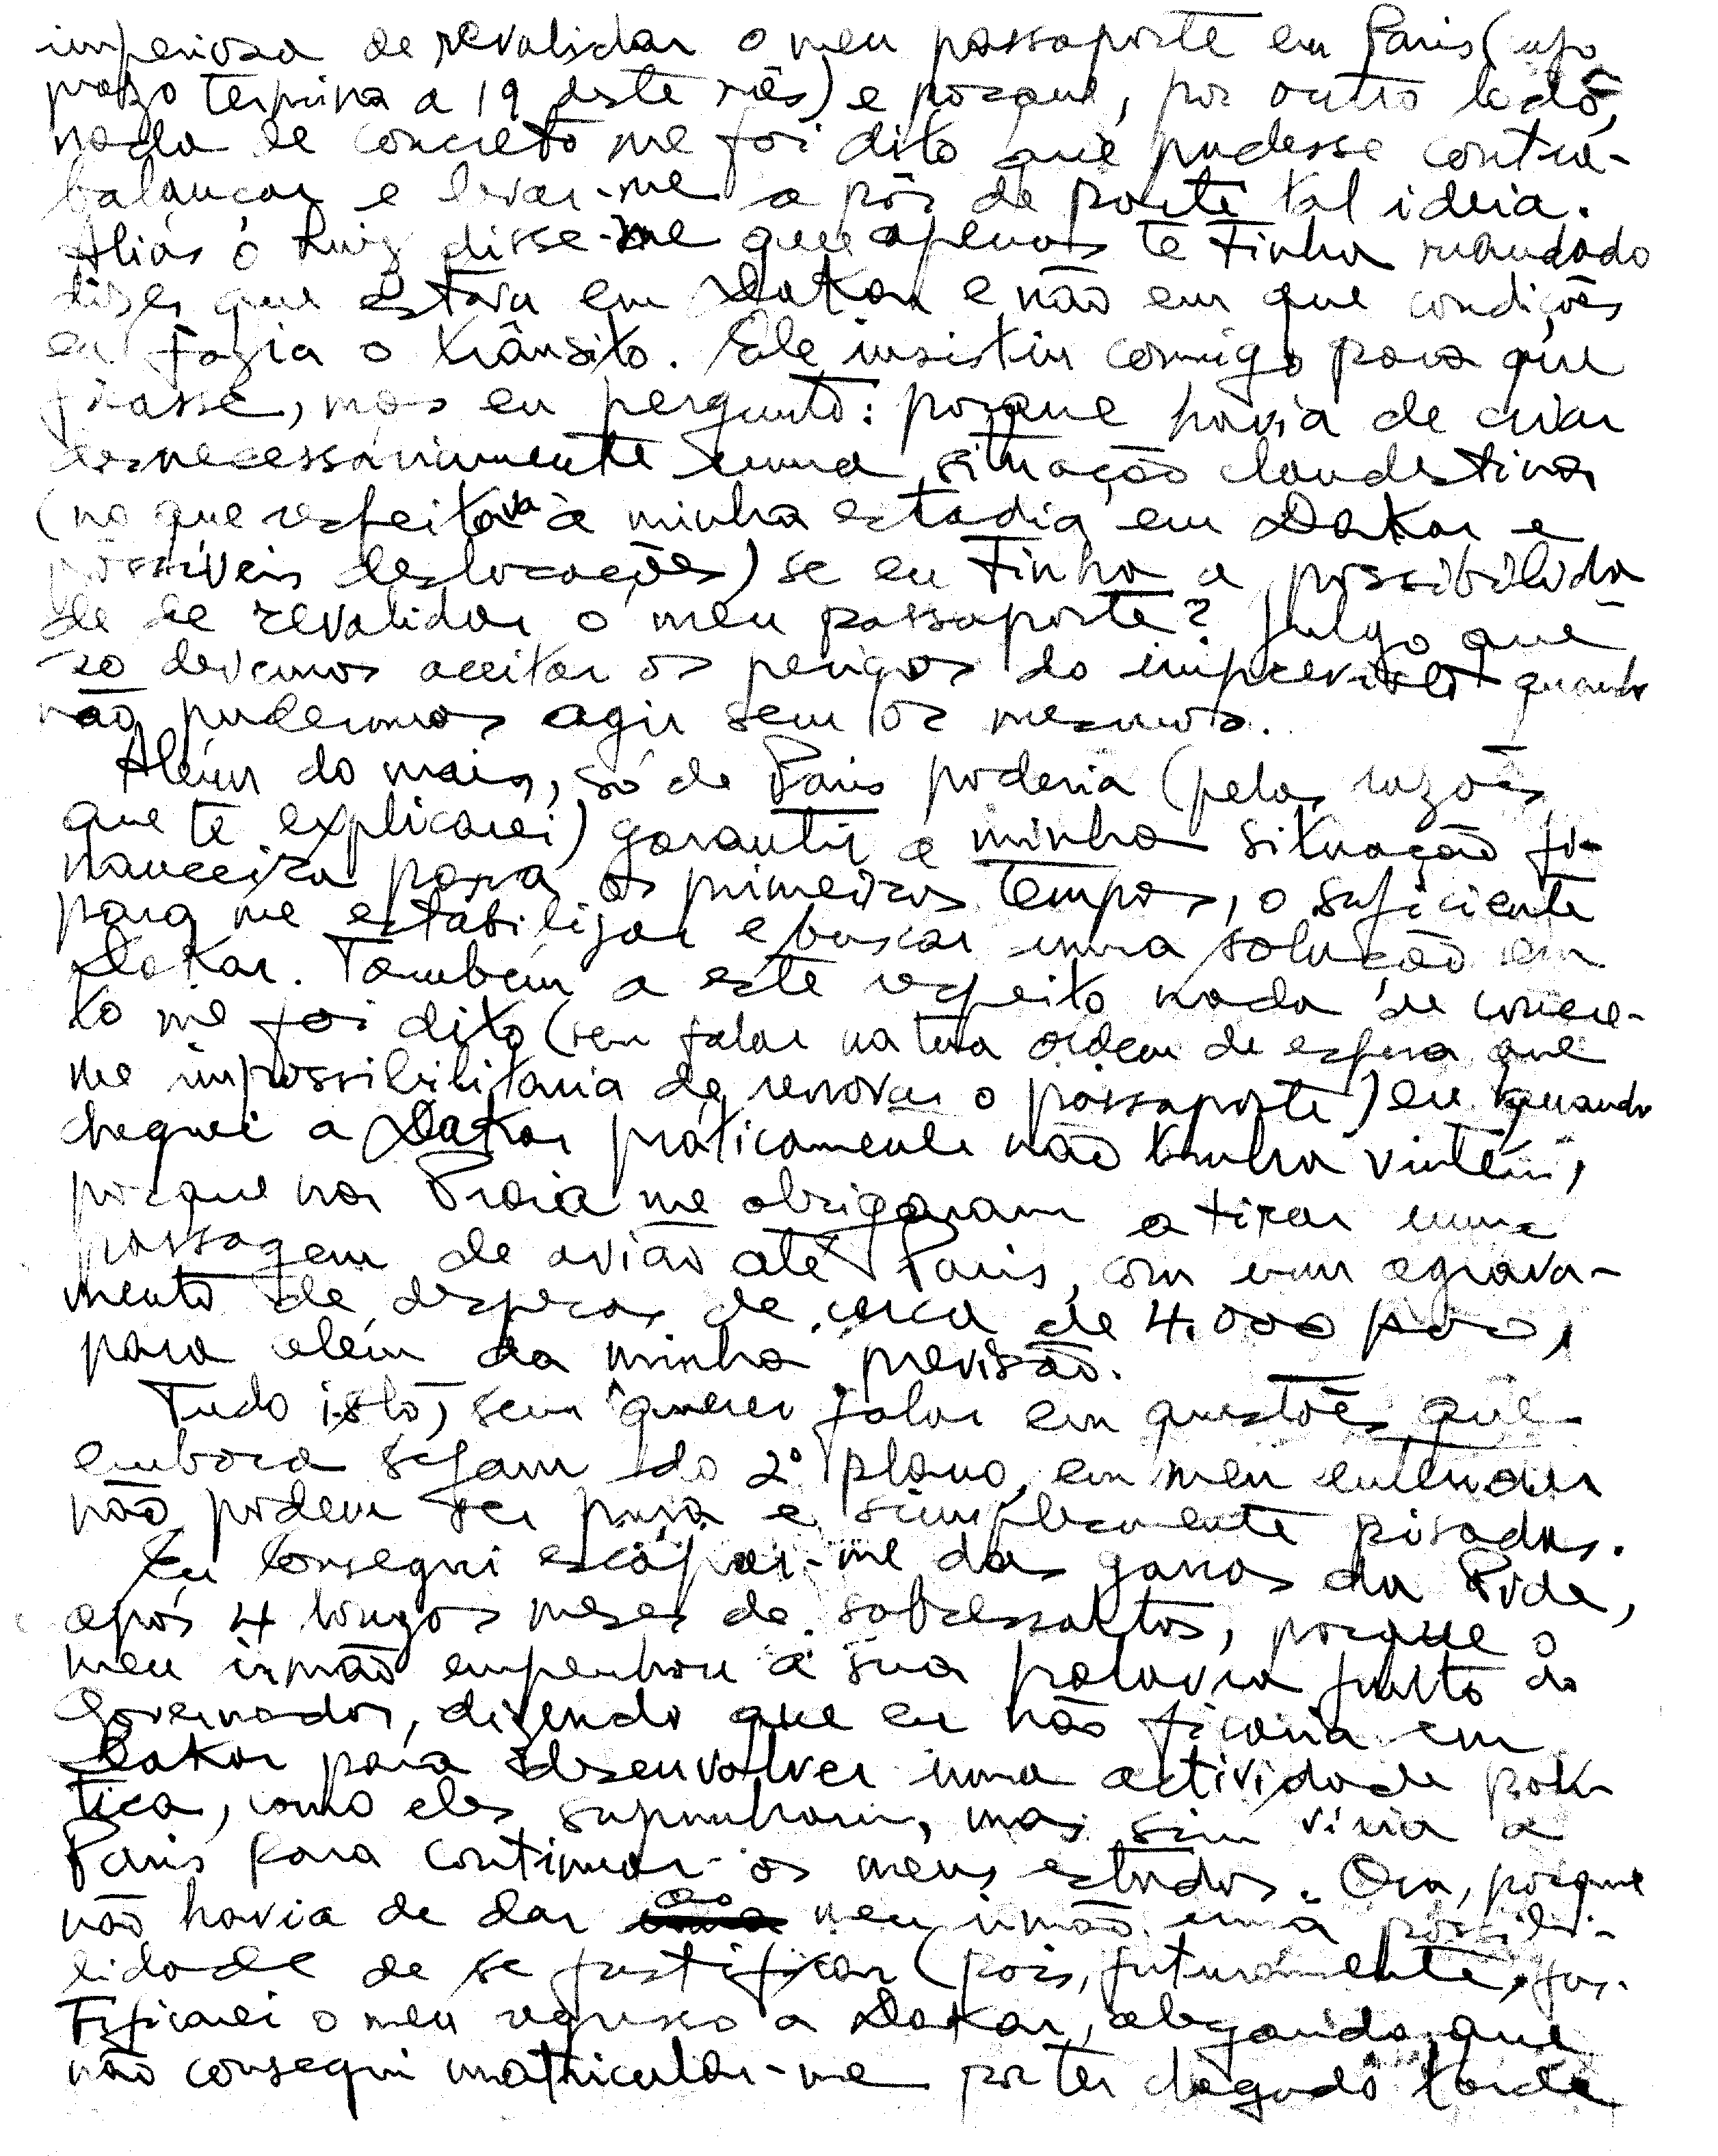 imperiosa de revalidar o meu passaporte em Paris (cujo
prazo termina a 19 deste mês) e porque, por outro lado,
nada de concreto me foi dito que pudesse contra-
balançar e levar-me a pôr de parte tal ideia.
Aliás o Luiz disse-me que apenas te tinha mandado
dizer que estava em Dakar e não em que condições
eu fazia o trânsito. Ele insistiu comigo para que
ficasse, mas eu pergunto: porque havia de criar
desnecessàriamente uma situação clandestina
(no que respeitava à minha estadia em Dakar e
possíveis deslocações) se eu tinha a possibilida
de de revalidar o meu passaporte? Julgo que
só devemos aceitar os perigos do imprevisto quando
não pudermos agir sem os mesmos.
Além do mais, só de Paris poderia (pelas razões
que te explicarei) garantir a minha situação fi-
nanceira para os primeiros tempos, o suficiente
para me estabilizar e buscar uma solução em
Dakar. Também a este respeito nada de concre-
to me foi dito (sem falar na tua ordem de espera que
me impossibilitaria de renovar o passaporte) eu quando
cheguei a Dakar pràticamente não tinha vintém,
porque na Praia me obrigaram a tirar uma
passagem de avião até Paris, com um agrava-
mento de despesas de cerca de 4.000
para além da minha previsão.
Tudo isto, sem querer falar em questões que
embora sejam do 2º plano, em meu entender
não podem ser pura e simplesmente pisadas.
Eu consegui escapar-me das garras da Pide,
após 4 longos meses de sobressaltos, porque o
meu irmão empenhou a sua palavra junto do
Governador, dizendo que eu não ficaria em
Dakar para desenvolver uma actividade polí
tica, como eles supunham, mas sim viria a
Paris para continuar os meus estudos. Ora, porque
não havia de dar ao meu irmão uma possibi-
lidade de se justificar (pois, futuramente, jus-
tificarei o meu regresso a Dakar, alegando que
não consegui matricular-me por ter chegado tarde